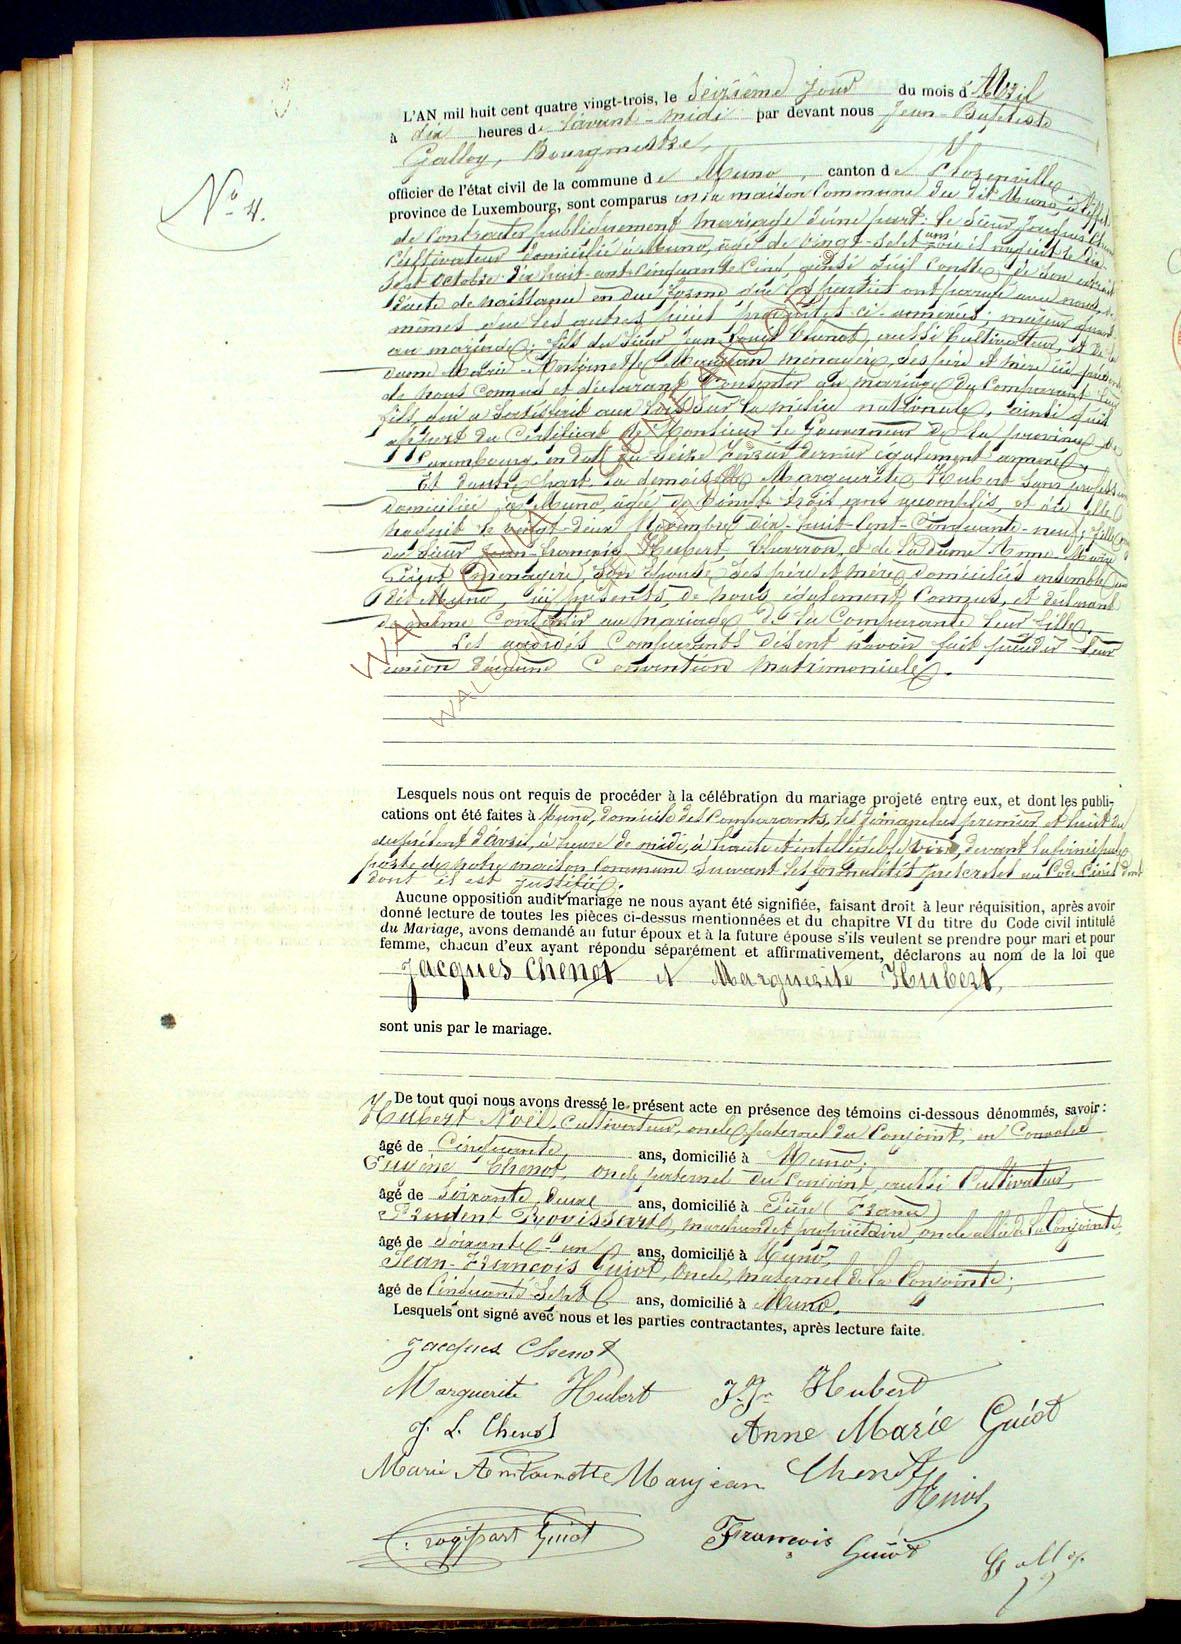 L'AN mil huit cent quatre vingt-trois, le Seizième jour du mois d'Avril
à dix heures de l'avant-midi par devant nous Jean-Baptiste
Galloy, Bourgmestre,
officier de l'état civil de la commune de Muno, canton de Florenville
N° 4.
province de Luxembourg, sont comparus en la maison Commune du dit Muno à l'effet
de Contracter publiquement mariage d'une part: le Sieur Jacques Chenot
Cultivateur domicilié à Muno, âgé de vingt-sept ans où il naquit le dix
sept octobre dix huit-cent-cinquante cinq, ainsi qu'il conste de son extrait
d'acte de naissance en due forme que les parties ont paraphé avec nous, de
mêmes que les autres pièces produites ci-annexées; majeur quant
au mariage; fils du sieur Jean Louis Chenot, aussi Cultivateur, et de la
dame Marie-Antoinette Manjean ménagère, ses père et mère ici présents
de nous connus et déclarant Consentir au mariage du Comparant leur
fils, qui a satisfait aux lois sur la milice nationale, ainsi qu'il
appert du Certificat de Monsieur le Gouverneur de la province de
Luxembourg, en date du seize février dernier également annexé,
Et d'autre part la demoiselle Marguerite Hubert sans profession
domiciliée à Muno âgée de vingt-trois ans accomplis, et où elle
naquit le vingt-deux Novembre dix-huit-Cent-Cinquante-neuf, fille
du Sieur Jean-François Hubert, Charron, et de la Dame Anne-Marie
Guiot ménagère, son épouse ses père et mère domiciliés ensemble au
dit Muno, ici présents de nous également connus, et déclarant
de même Consentir au mariage de la Comparante leur fille.
Les accordés Comparants disent n'avoir fait précéder leur
union d'aucune Convention Matrimoniale.
Lesquels nous ont requis de procéder à la célébration du mariage projeté entre eux, et dont les publi-
cations ont été faites à Muno, domicile des Comparants, les dimanches premier et huit du
du présent d'avril, à heure de midi, à haute et intelligible voix, devant la principale
porte de notre maison Commune suivant les formalités prescrites au Code Civil dont
dont il est justifié.
Aucune opposition audit mariage ne nous ayant été signifiée, faisant droit à leur réquisition, après avoir
donné lecture de toutes les pièces ci-dessus mentionnées et du chapitre VI du titre du Code civil intitulé
du Mariage, avons demandé au futur époux et à la future épouse s'ils veulent se prendre pour mari et pour
femme, chacun d'eux ayant répondu séparément et affirmativement, déclarons au nom de la loi que
Jacques Chenot et Marguerite Hubert,
sont unis par le mariage.
De tout quoi nous avons dressé le présent acte en présence des témoins ci-dessous dénommés, savoir:
Hubert Noël, Cultivateur, oncle paternel du Conjoint,
âgé de Cinquante, ans, domicilié à Muno;
Eugène Chenot, oncle paternel du Conjoint, aussi Cultivateur,
âgé de Soixante deux ans, domicilié à Pure (France)
Prudent Rogissart, marchand et propriétaire, oncle allié de la Conjointe
âgé de Soixante-un ans, domicilié à Muno,
Jean-François Guiot, Oncle maternel de la Conjointe;
âgé de Cinquante-Sept ans, domicilié à Muno.
Lesquels ont signé avec nous et les parties contractantes, après lecture faite.
Jacques Chenot
Marguerite Hubert J. Fr Hubert
J. L. Chenot Anne Marie Guiot
Marie Antoinette Manjean Chenot
rogissart Guiot François Guiot Galloy